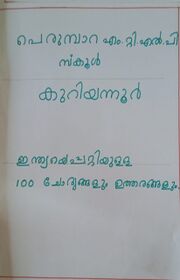 പെരുമ്പാറ എം.റ്റി.എൽ.പി
സ്കൂൾ
കുറിയന്നൂർ
ഇന്ത്യയെപ്പറ്റിയുള്ള
100 ചോദ്യങ്ങളും ഉത്തരങ്ങളും.